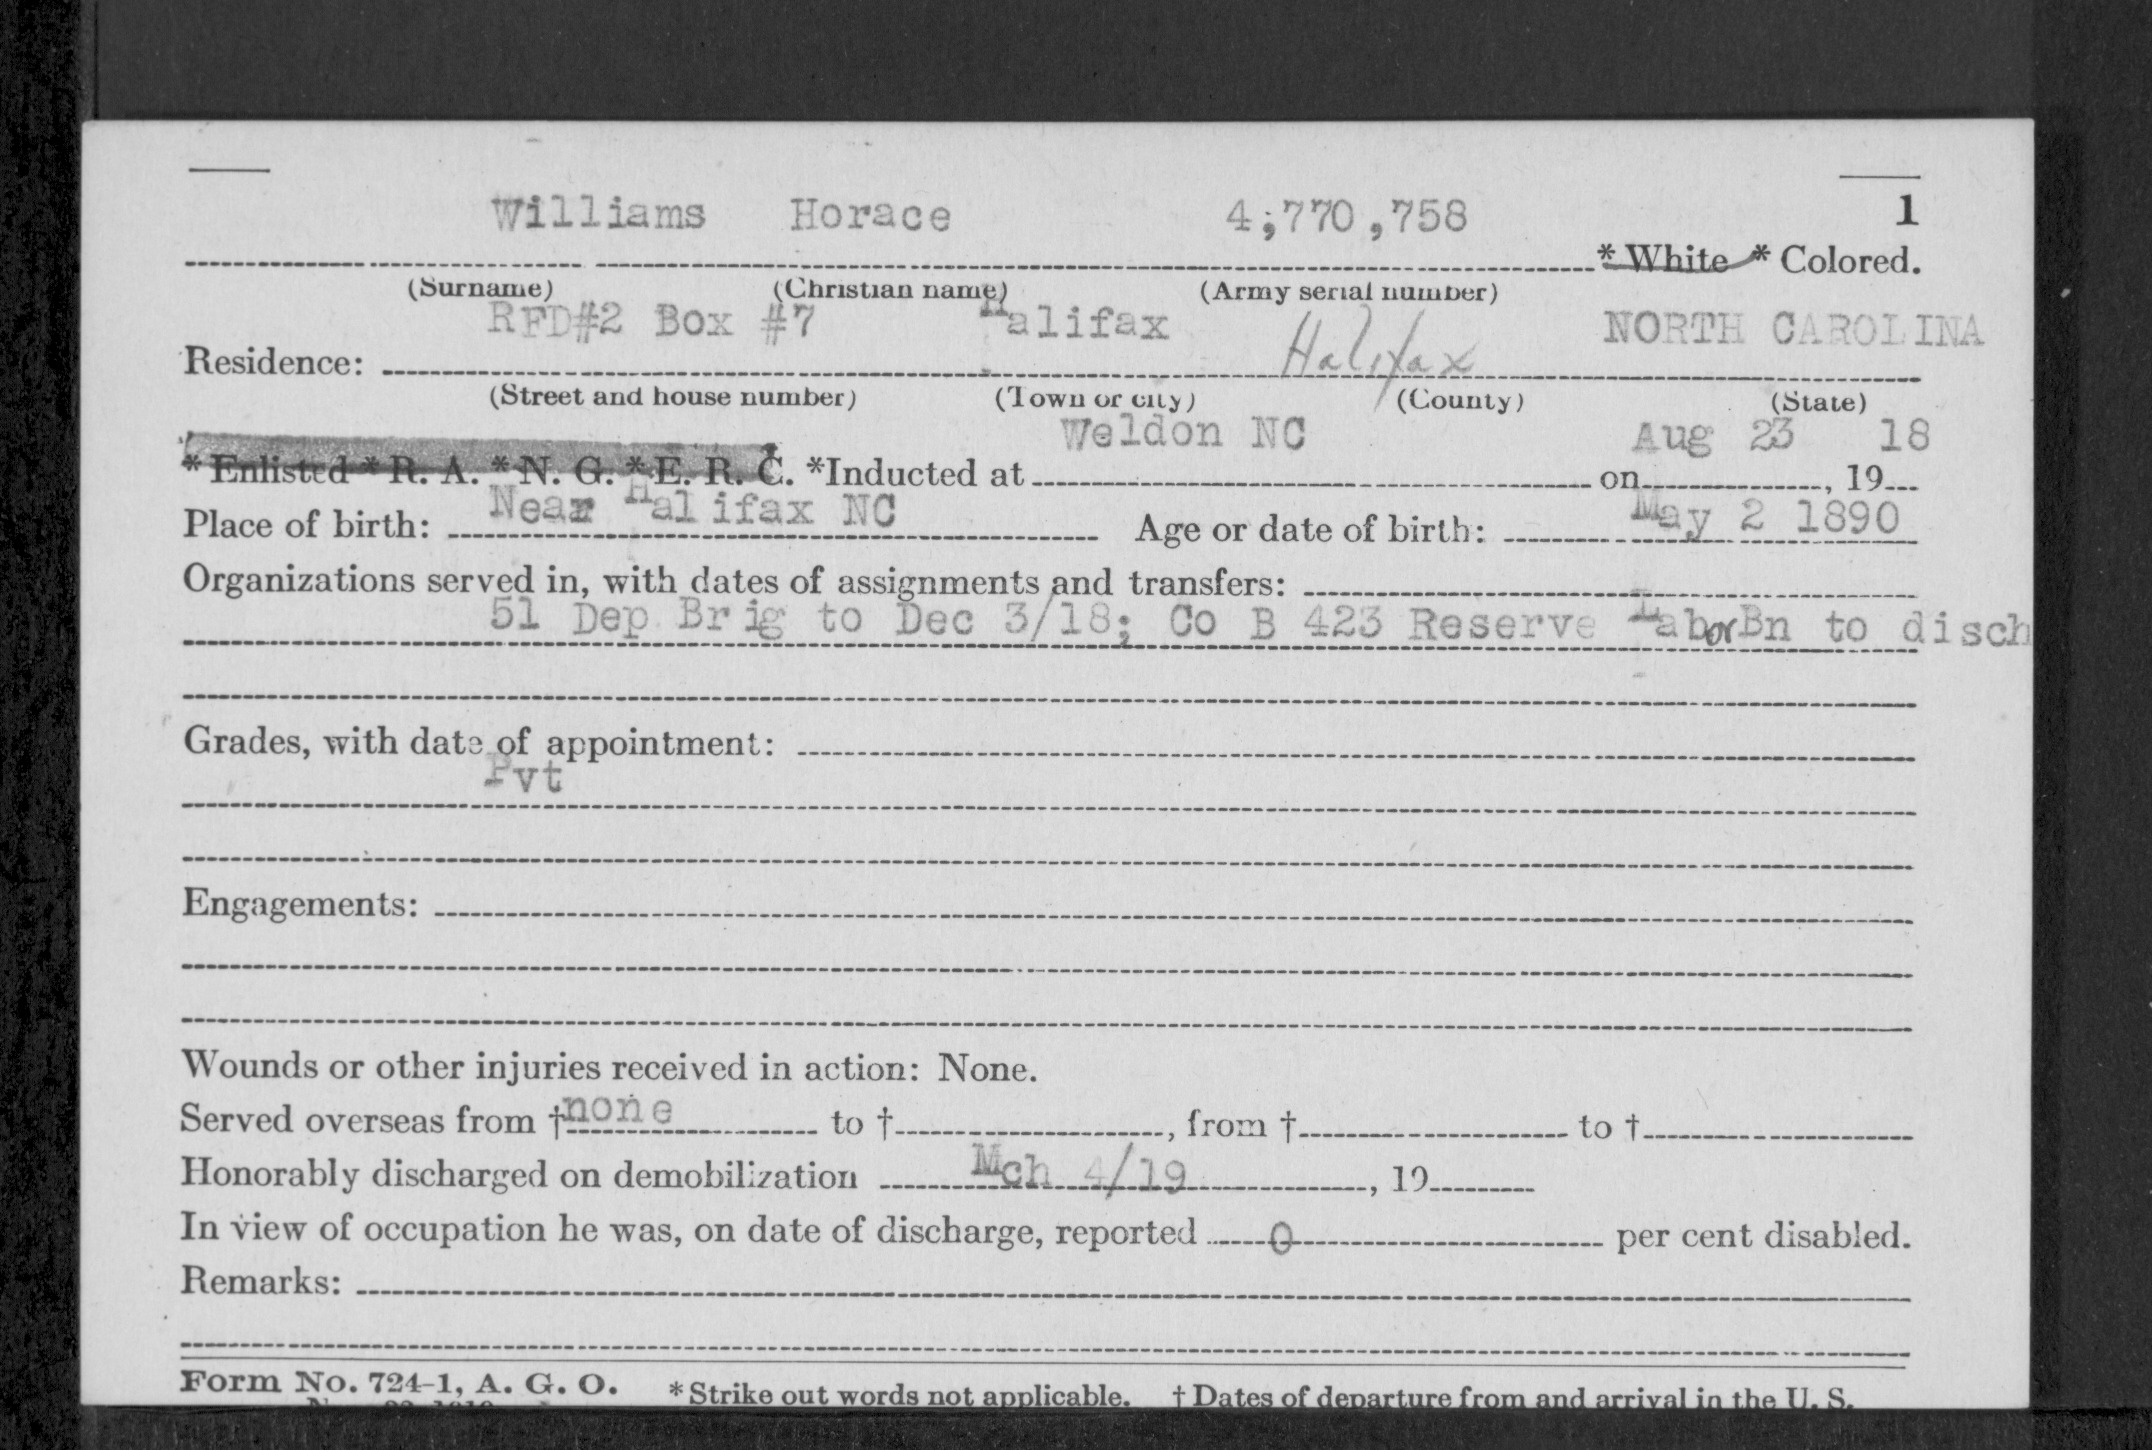 Williams Horace 4,770,758 1
* White * Colored.
(Surname) (Christian name) (Army serial number)
RFD#2 Box #7 Halifax Halifax NORTH CAROLINA
Residence:
(Street and house number) (Town or city) (County) (State)
Weldon NC Aug 23 18
* Enlisted * R. A. * N. G. * E. R. C. *Inducted at on , 19
Near Halifax NC May 2 1890
Place of birth: Age or date of birth:
Organizations served in, with dates of assignments and transfers:
51 Dep Brig to Dec 3/18; Co B 423 Reserve Labor Bn to disch
Grades, with date of appointment:
Pvt
Engagements:
Wounds or other injuries received in action: None.
Served overseas from † none to † , from † to †
Honorably discharged on demobilization Mch 4/19 , 19
In view of occupation he was, on date of discharge, reported 0 per cent disabled.
Remarks:
Form No. 724-1, A. G. O. * Strike out words not applicable. † Dates of departure from and arrival in the U. S.